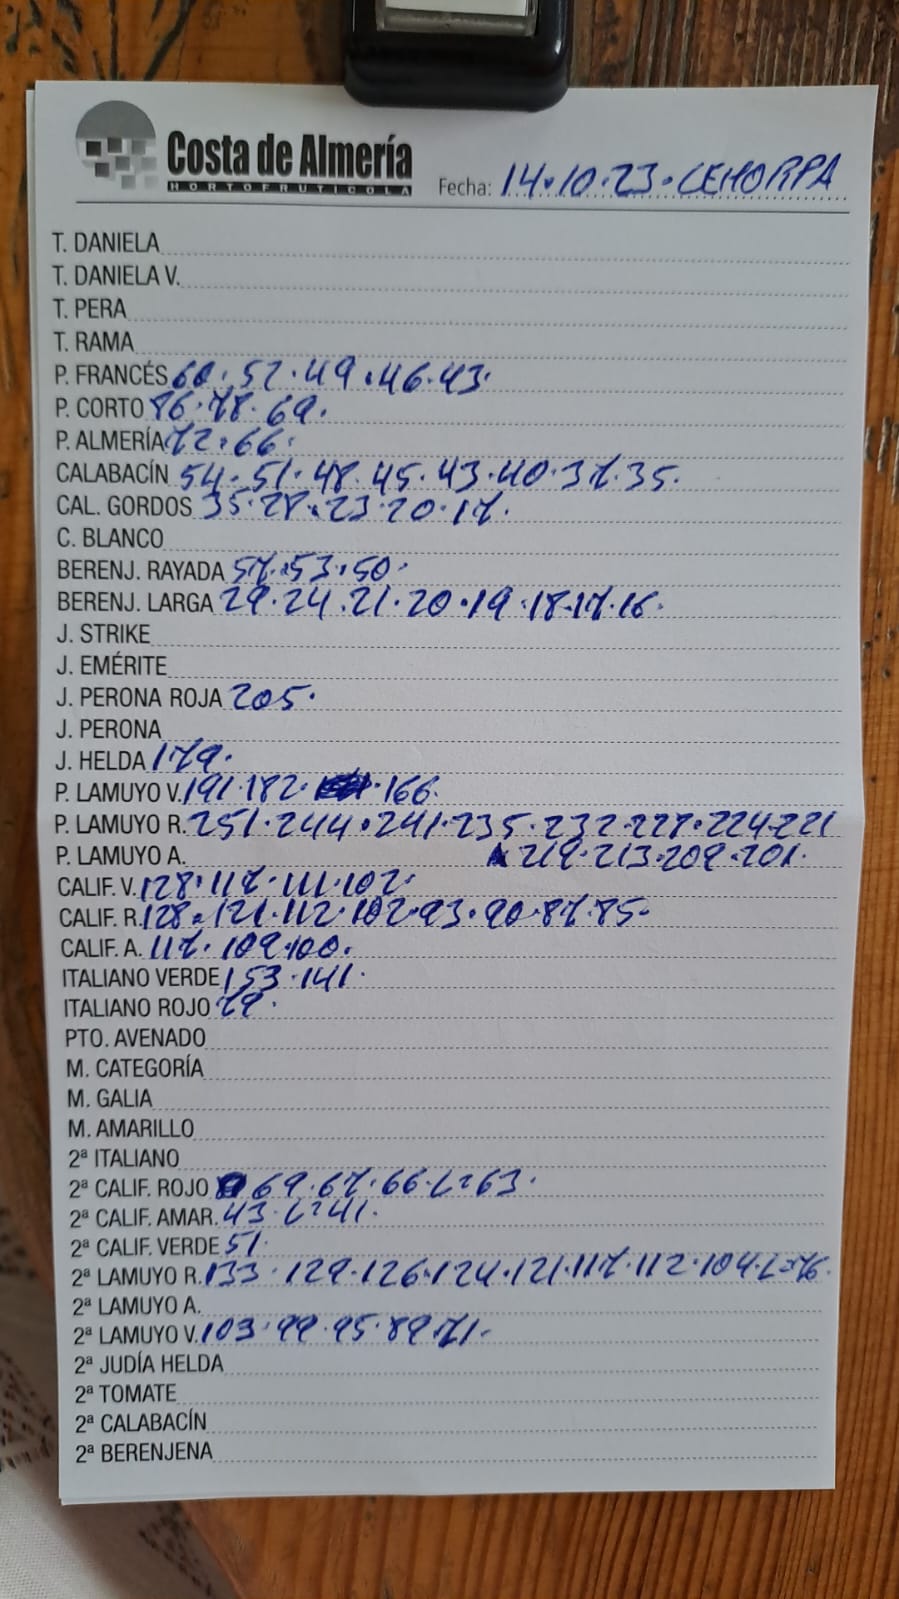 Costa de Almería
HORTOFRUTICOLA
Fecha: 14.10.23. CEHORPA
T. DANIELA
T. DANIELA V.
T. PERA
T. RAMA
P. FRANCÉS 60. 52. 49. 46. 43.
P. CORTO 86. 78. 69.
P. ALMERÍA 72. 66.
CALABACÍN 54. 51. 48. 45. 43. 40. 37. 35.
CAL. GORDOS 35. 28. 23. 20. 17.
C. BLANCO
BERENJ. RAYADA 57. 53. 50.
BERENJ. LARGA 29. 24. 21. 20. 19. 18. 17. 16.
J. STRIKE
J. EMÉRITE
J. PERONA ROJA 205.
J. PERONA
J. HELDA 179.
P. LAMUYO V. 191. 182. 166.
P. LAMUYO R. 251. 244. 241. 235. 232. 227. 224. 221
P. LAMUYO A. 219. 213. 209. 201.
CALIF. V. 128. 117. 111. 102.
CALIF. R. 128. 121. 112. 102. 93. 90. 87. 85.
CALIF. A. 117. 109. 100.
ITALIANO VERDE 153. 141.
ITALIANO ROJO 79.
PTO. AVENADO
M. CATEGORÍA
M. GALIA
M. AMARILLO
2ª ITALIANO
2ª CALIF. ROJO 69. 67. 66. L=63.
2ª CALIF. AMAR. 43. L=41.
2ª CALIF. VERDE 51.
2ª LAMUYO R. 133. 129. 126. 124. 121. 117. 112. 104. L=76.
2ª LAMUYO A.
2ª LAMUYO V. 103. 99. 95. 89. 71.
2ª JUDÍA HELDA
2ª TOMATE
2ª CALABACÍN
2ª BERENJENA